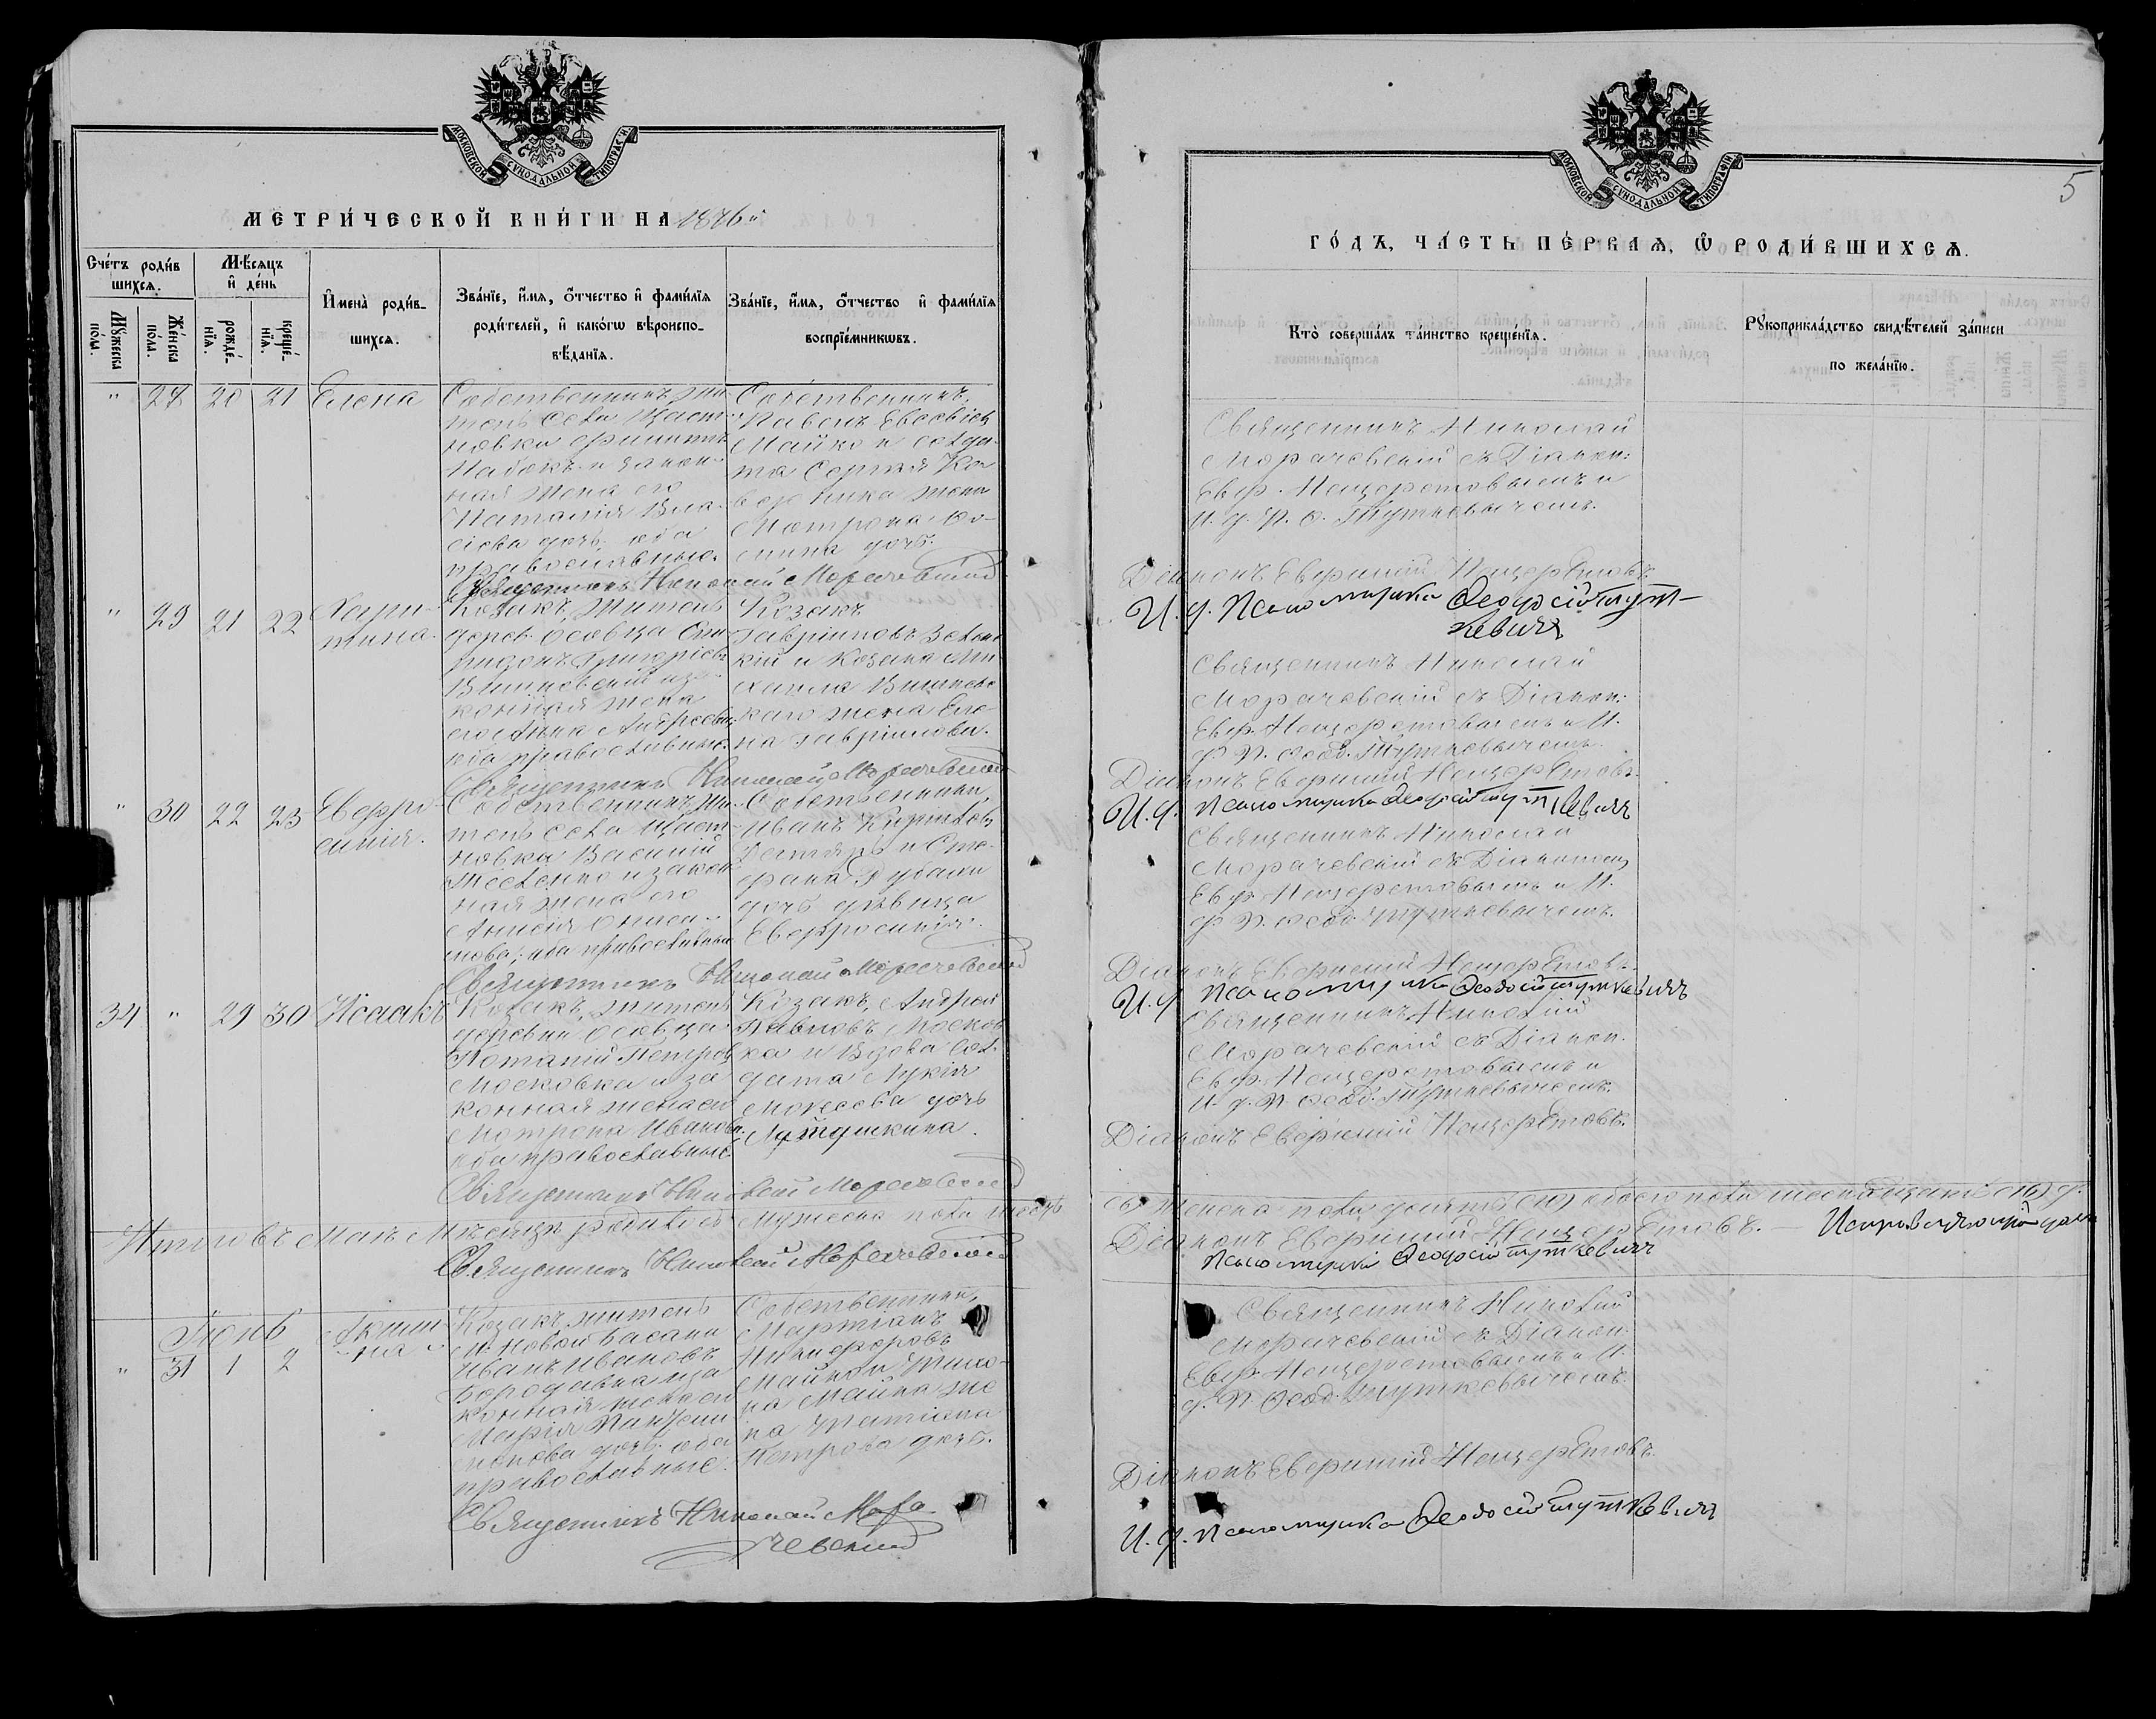 МОСКОВСКОЙ СѴНОДАЛЬНОЙ ТИПОГРАФ:И
МЕТРИ́ЧЕСКОЙ КНИ́ГИ НА 1876й
Сче́тъ роди́вшихся.
Мꙋ́жеска по́ла.
Же́нска по́ла.
Мѣ́сяцъ и҆ де́нь
рожде́нїя.
креще́нїя.
И҆мена̀ роди́вшихся.
Зва́нїе, и҆́мя, ѻ҆́тчество и҆ фами́лїя
роди́телей, и҆ како́гѡ вѣроиспо-
вѣ́данїя.
Зва́нїе, и҆́мя, ѻ҆́тчество и҆ фами́лїя
воспрїе́мникѡвъ.
" 28 20 21 Елена
Собственникъ, жи
тель села Щаст
новки
Набокъ и закон
ная жена его
Наталія Вла-
сіева дочь; оба
православные.
Собственникъ,
Павелъ Евсевіевъ
Майко и солда-
та Сергія Ко
жена
Мотрона
дочь.
Священникъ Николай Морачевский
" 29 21 22 Хари-
тина.
Козакъ, житель
дерев. Осовца Спи
ридонъ Григоріевъ
закон
конная жена
его Анна Андреева
оба православные.
Козакъ
Гавріиловъ
кій и Козака Ми-
хаила
каго жена Еле-
на Гавріилова.
Священникъ Николай Морачевский
" 30 22 23 Евфро
синія.
Собственникъ, жи-
тель села Щаст
новки Василій
и закон
ная жена его
Анисія
нова; оба православные
Собственникъ,
Иванъ Кирилловъ
и Сте-
фана Рубана
дочь дѣвица
Евфросинія.
Священникъ Николай Морачевский
34 " 29 30 Исаакъ
Козакъ, житель
деревни Осовца
Потапій Петровъ
Московка и за
конная жена его
Мотрона Иванова
оба православные
Козакъ, Андрей
Павловъ Москов
ка и Вдова сол-
дата Лукія
Моисеева дочь
Священникъ Николай Морачевский
Итого въ Маѣ Мѣсяцѣ родилось Мужеска пола шесть
Священникъ Николай Морачевский
Іюнь
" 31 1 2 Акили-
на
Козакъ житель
м. Новой Басани
Иванъ Ивановъ
Бородавка и за
конная жена его
Марія Пантели
монова дочь; оба
православные.
Собственникъ,
Мартіанъ
Никифоровъ
Майка же
на Татіана
Петрова дочь.
Священникъ Николай Мора-
чевский
МОСКОВСКОЙ СѴНОДАЛЬНОЙ ТИПОГРАФІИ
5
ГО́ДЪ, ЧА́СТЬ ПЕ́РВАЯ, Ѡ҆ РОДИ́ВШИХСЯ.
Кто̀ соверша́лъ та́инство креще́нїя.
Рꙋкоприкла́дство свидѣ́телей за́писи
по жела́нїю.
Священникъ Николай
Морачевскій съ Діакон:
Евф. Нещеретовымъ и
И. д. П. Ѳ. Туткевичемъ.
Діаконъ Евфимій Нещеретовъ
И. д. Псаломщика Ѳеодосій Тут-
кевичъ
Священникъ Николай
Морачевскій съ Діакон:
Евф. Нещеретовымъ и И.
д. П. Ѳеод. Туткевичемъ
Діаконъ Евфимій Нещеретовъ.
И. д. Псаломщика Ѳеодосій Туткевичъ
Священникъ Николай
Морачевскій съ Діакономъ
Евф. Нещеретовымъ и И.
д. П. Ѳеод. Туткевичемъ.
Діаконъ Евфимій Нещеретовъ.
И. д. Псаломщика Ѳеодосій Туткевичъ
Священникъ Николай
Морачевскій съ Діакон.
Евф. Нещеретовымъ и
И. д. П. Ѳеод. Туткевичемъ.
Діаконъ Евфимій Нещеретовъ.
(6) женска пола десять (10) обоего пола шестнадцать (16) д.
Діаконъ Евфимій Нещеретовъ. —
Псаломщика Ѳеодосій Туткевичъ
Священникъ Николай
Морачевскій съ Діакон.
Евф. Нещеретовымъ и И.
д. П. Ѳеод. Туткевичемъ.
Діаконъ Евфимій Нещеретовъ.
И. д. Псаломщика Ѳеодосій Туткевичъ